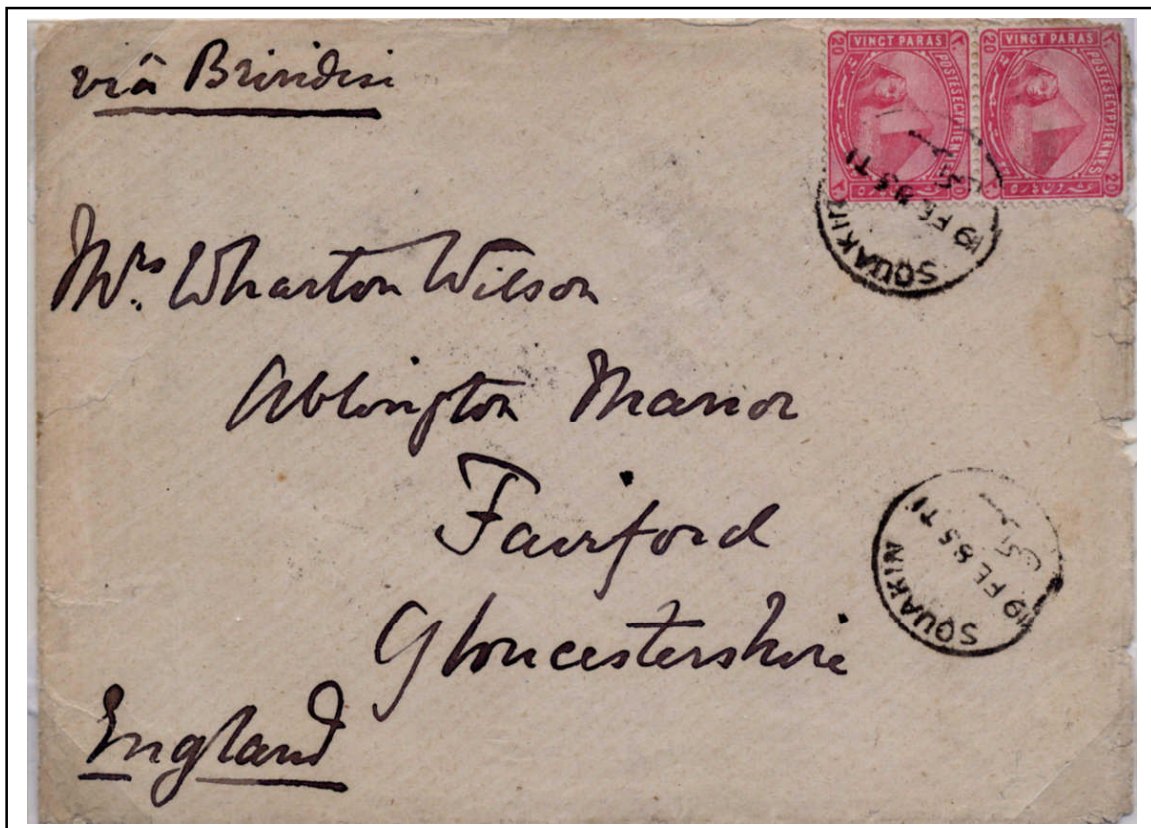 via Brindisi
20 VINGT PARAS ٢٠
POSTES EGYPTIENNES
20
20 VINGT PARAS ٢٠
POSTES EGYPTIENNES
20
SOUAKIN
19 FE 85 T1
Mrs. Wharton Wilson
Ablington Manor
Fairford
Gloucestershire
England
SOUAKIN
19 FE 85 T1